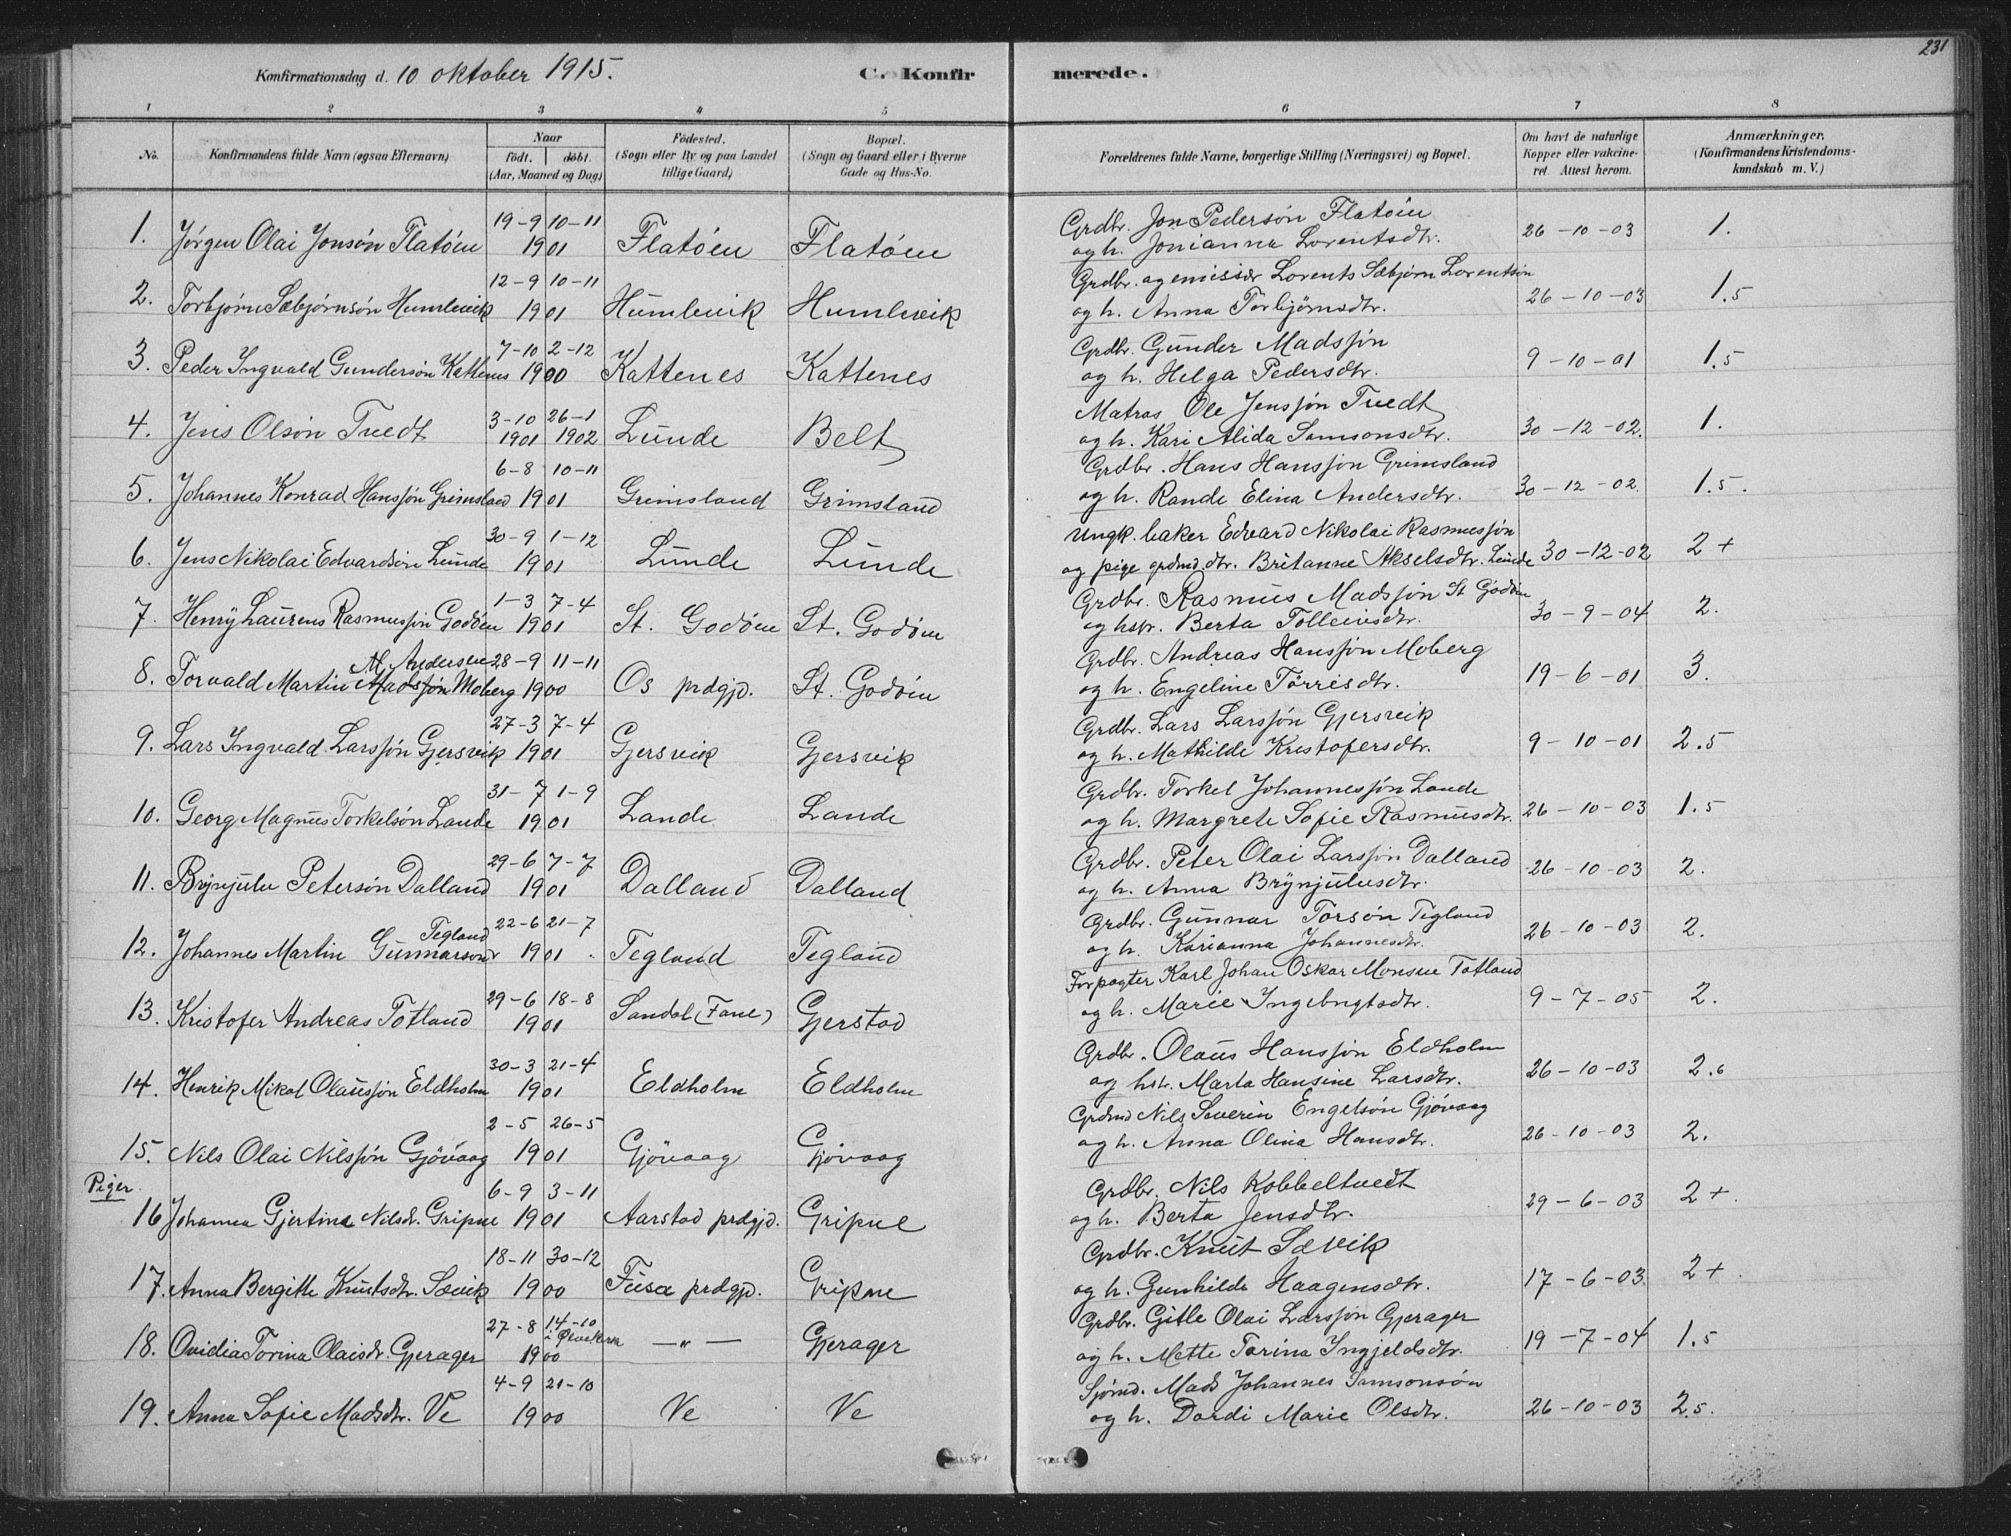 231
Konfirmationsdag d. 10 oktober 1915. C. Konfirmerede.
1 2 3 4 5 6 7 8
No. Konfirmandens fulde Navn (ogsaa Efternavn) Naar födt. döbt. (Aar, Maaned og Dag) Födested. (Sogn eller By og paa Landet tillige Gaard) Bopæl. (Sogn og Gaard eller i Byerne Gade og Hus-No. Forældrenes fulde Navne, borgerlige Stilling (Næringsvei) og Bopæl. Om havt de naturlige Kopper eller vakcineret. Attest herom. Anmærkninger. (Konfirmandens Kristendomskundskab m. V.)
1. Jørgen Olai Jonsøn Flatöen 19-9 10-11 1901 Flatöen Flatöen Grdbr. Jon Pedersøn Flatöen
og h. Jonianna Lorentsdtr. 26-10-03 1.
2. Torbjørn Sæbjørnsøn Humlevik 12-9 10-11 1901 Humlevik Humlevik Grdbr. og emissær Lorents Sæbjørn Lorentsøn
og h. Anna Torbjørnsdtr. 26-10-03 1.5
3. Peder Ingvald Gundersøn Kattenes 7-10 2-12 1900 Kattenes Kattenes Grdbr. Gunder Madssøn
og h. Helga Pedersdtr. 9-10-01 1.5
4. Jens Olsøn Tvedt 3-10 1901 26-1 1902 Lunde Belt Matros Ole Jenssøn Tvedt
og h. Kari Alida Samsonsdtr. 30-12-02. 1.
5. Johannes Konrad Hanssøn Grimsland 6-8 10-11 1901 Grimsland Grimsland Grdbr. Hans Hanssøn Grimsland
og h. Rande Elina Andersdtr. 30-12-02. 1.5.
6. Jens Nikolai Edvardsøn Lunde 30-9 1-12 1901 Lunde Lunde Ungk. baker Edvard Nikolai Rasmussøn
og pige grdmd.dtr. Britanne Akselsdtr. Lunde 30-12-02 2+
7. Henry Laurens Rasmussøn Godöen 1-3 7-4 1901 St. Godöen St. Godöen Grdbr. Rasmus Madssøn St Godöen
og hstr. Berta Tolleivsdtr. 30-9-04 2.
8. Torvald Martin Madssøn Moberg M. Andersen 28-9 11-11 1900 Os prdgjd. St. Godöen Grdbr. Andreas Hanssøn Moberg
og h. Engeline Törrisdtr. 19-6-01 3.
9. Lars Ingvald Larssøn Gjersvik 27-3 7-4 1901 Gjersvik Gjersvik Grdbr. Lars Larssøn Gjersvik
og h. Mathilde Kristofersdtr. 9-10-01 2.5
10. Georg Magnus Torkelsøn Lande 31-7 1-9 1901 Lande Lande Grdbr. Torkel Johannessøn Lande
og h. Margrete Sofie Rasmusdtr. 26-10-03 1.5
11. Brynjulv Petersøn Dalland 29-6 7-7 1901 Dalland Dalland Grdbr. Peter Olai Larssøn Dalland
og h. Anna Brynjulvsdtr. 26-10-03 2.
12. Johannes Martin Gunnarson Tegland 22-6 21-7 1901 Tegland Tegland Grdbr. Gunnar Torsøn Tegland
og h. Karianna Johannesdtr. 26-10-03 2.
13. Kristofer Andreas Totland 29-6 18-8 1901 Sandal (Fane) Gjerstad Forpagter Karl Johan Oskar Monsen Totland
og h. Marie Ingebrigtsdtr. 9-7-05 2.
14. Henrik Mikal Olaussøn Eldholm 30-3 21-4 1901 Eldholm Eldholm Grdbr. Olaus Hanssøn Eldholm
og hstr. Marta Hansine Larsdtr. 26-10-03 2.
15. Nils Olai Nilssøn Gjövaag 2-5 26-5 1901 Gjövaag Gjövaag Grdmd Nils Severin Engelsøn Gjövaag
og h. Anna Olina Hansdtr. 26-10-03 2.
Piger.
16 Johanna Gjertina Nilsdr. Gripne 6-9 3-11 1901 Aarstad prdgjd. Gripne Grdbr. Nils Kobbeltvedt
og h. Berta Jensdtr. 29-6-03 2+.
17. Anna Bergitte Knutsdtr. Sævik 18-11 30-12 1900 Fusa prdgjd. Gripne Grdbr. Knut Sævik
og h. Gunhilde Haagensdtr. 17-6-03. 2+.
18. Ovidia Torina Olaisdr. Gjerager 27-8 14-10 1900 —"— Gjerager Grdbr. Gitle Olai Larssøn Gjerager
og h. Mette Torina Ingjeldsdtr. 19-7-04 1.5
19. Anna Sofie Madsdtr. Ve 4-9 21-10 1900 Ve Ve Sjömd. Mads Johannes Samsonsøn
og h. Dordi Marie Olsdtr. 26-10-03 2.5.